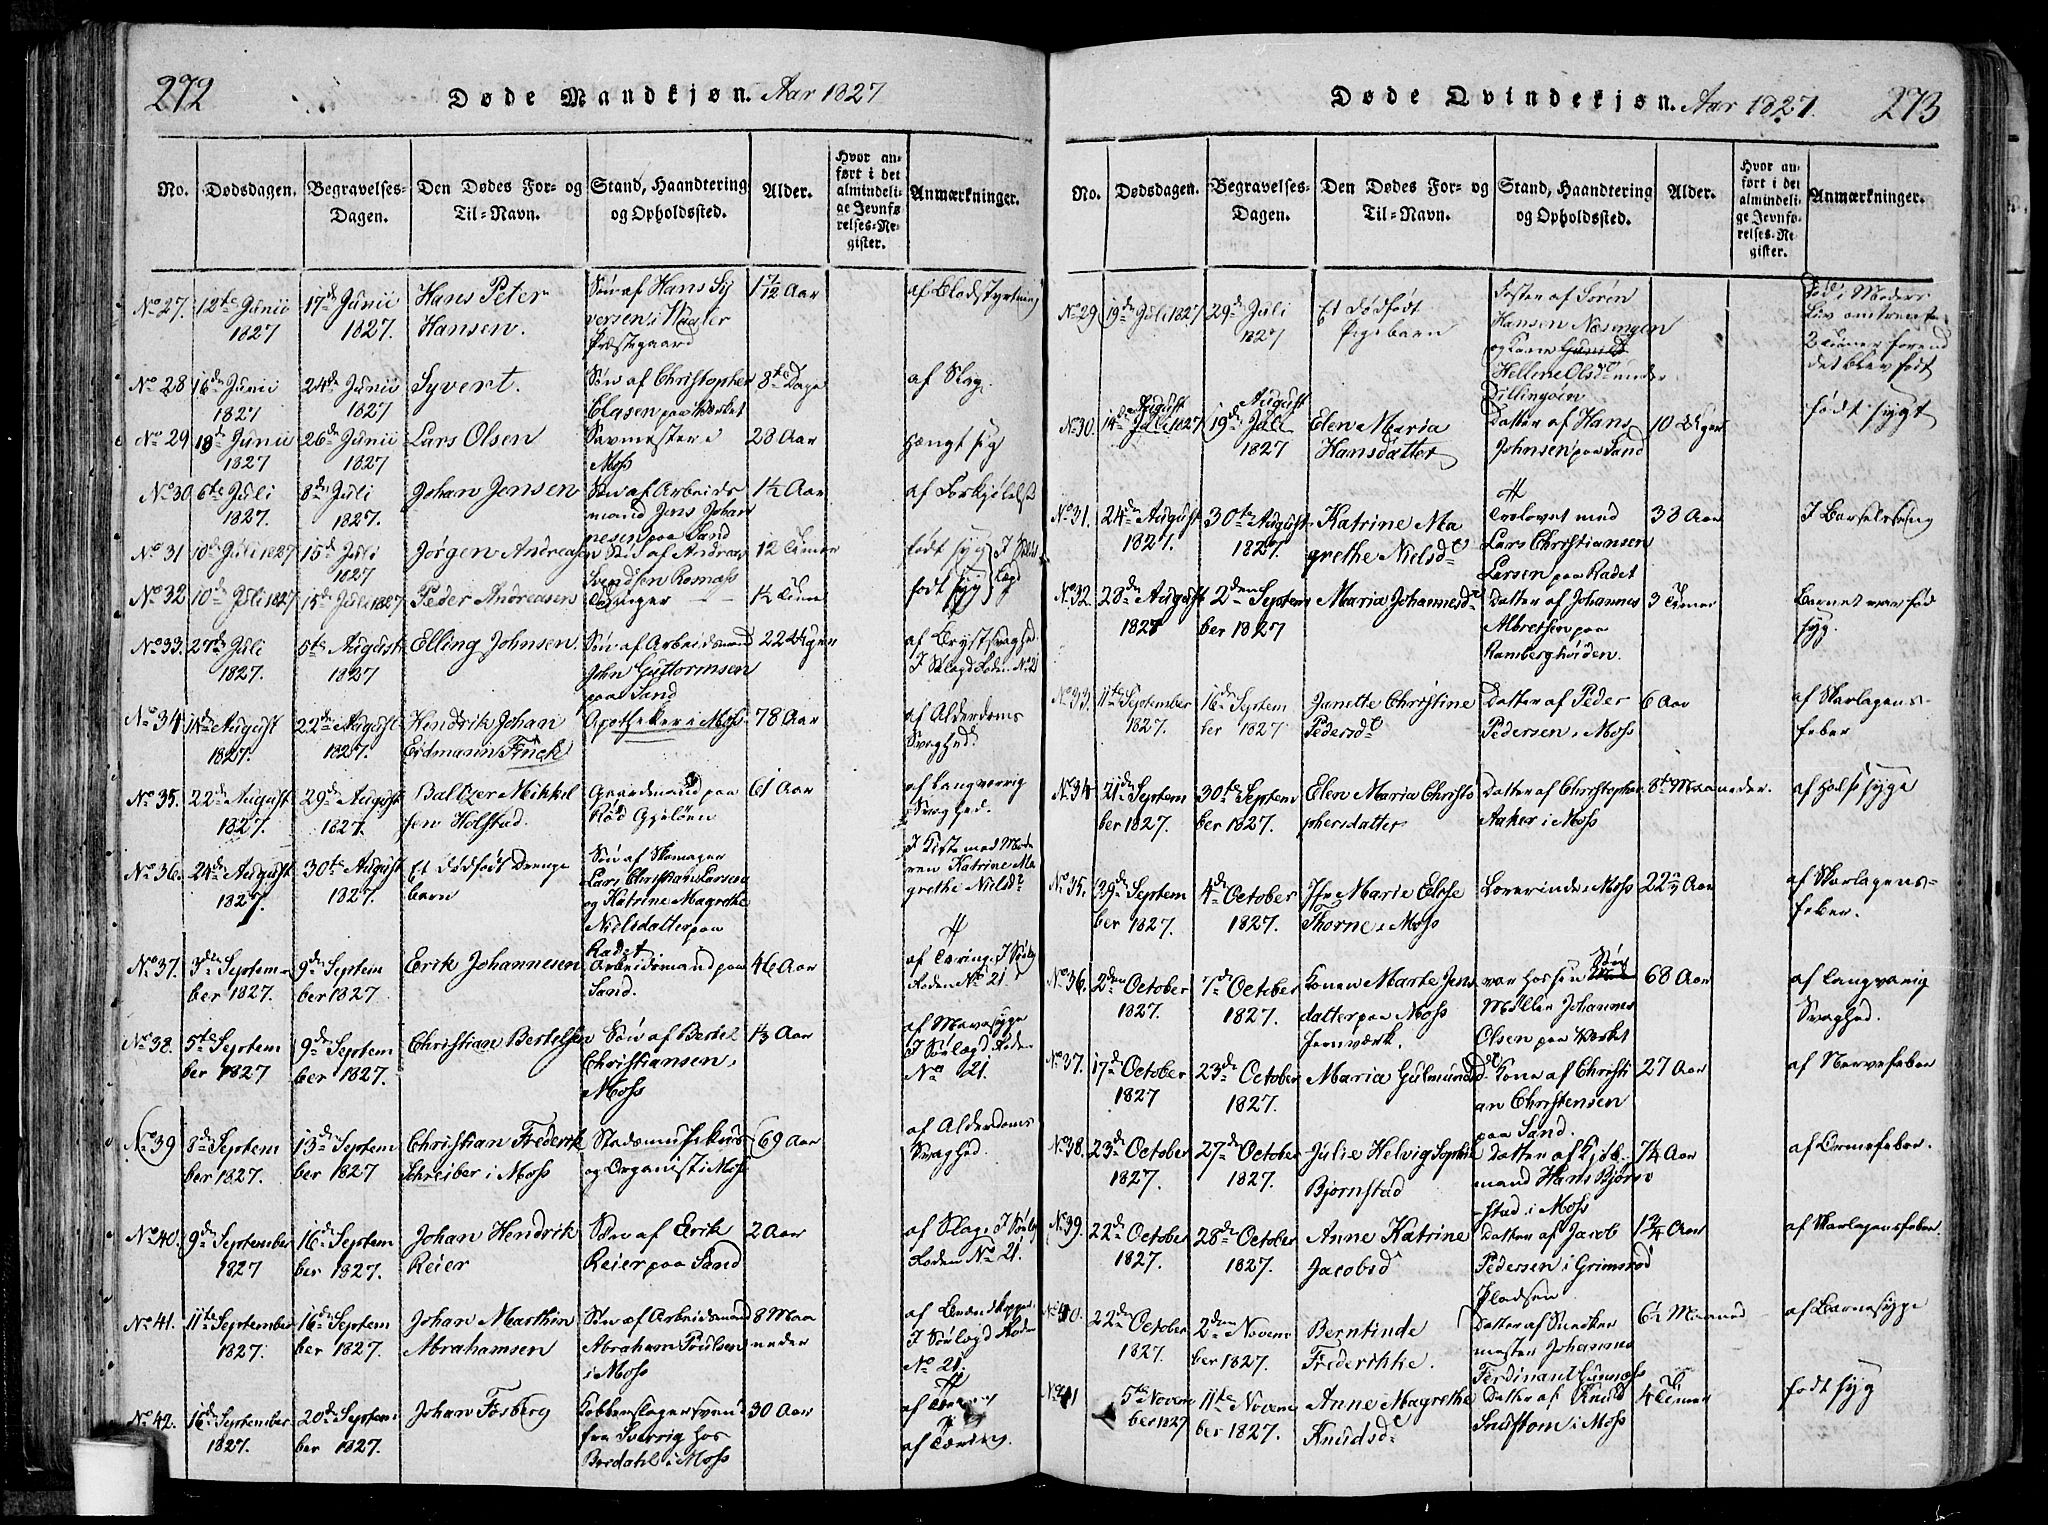 272
Døde Mandkjøn. Aar 1827
No.
Dødsdagen.
Begravelses-
Dagen.
Den Dødes For- og
Til-Navn.
Stand, Haandtering
og Opholdssted.
Alder.
Hvor an-
ført i det
almindeli-
ge Jevnfø-
relses-Re-
gister.
Anmærkninger.
No 27. 12te Junii 1827
17de Junii 1827.
Hans Peter
Hansen.
Søn af Hans Sy
versen i Waaler
Præstegaard
1 7/12 Aar
af Blodstyrtning
No 28 16de Junii 1827
24de Junii 1827
Syvert.
Søn af Christopher
Clasen paa Værket
8te Dage
af Slag.
No 29 18de Junii 1827
26de Junii 1827
Lars Olsen
Savmester i
Moss
28 Aar
hængt sig
No 30 6te Juli 1827.
8de Juli 1827.
Johan Jensen
Søn af Arbeids
mand Jens Johan
nesen paa Sand
1½ Aar
af Forkjølelse
No 31 10de Juli 1827
15de Juli 1827
Jørgen Andreasen
Søn af Andreas
Svendsen Rosnæss
12 Timer
født syg
No 32 10de Juli 1827
15de Juli 1827
Peder Andreasen
Tvinger
1½ Time
født syg
No 33. 27de Juli 1827.
5te August 1827
Elling Johnsen.
Søn af Arbeidsmand
John Guttormsen
paa Sand
22 Uger
af Brystsvaghed.
No 34 August 1827.
22de August 1827.
Hendrik Johan
Erdmann Frick
Apotheker i Moss
78 Aar
af Alderdoms
Svaghed.
No 35. 22de August 1827.
29de August 1827.
Baltzer Mikkel
sen Holstad.
Gaardmand paa
Rød Gjeløen
61 Aar
af langvarig
Svaghed.
No 36. 24de August 1827.
30te August 1827.
Et dødfødt Drenge
barn
Søn af Skomager
Lars Christian Larsen
og Katrine Magrethe
Nielsdatter paa
Radet
I Kiste med Mode
ren Katrine Ma
grethe Nielsd.
No 37. 3de Septem-
ber 1827.
9de Septem
ber 1827.
Erik Johannesen
Arbeidsmand paa
Sand.
46 Aar
af Tæring.
No 21.
No 38. 5te Septem
ber 1827
9de Septem
ber 1827.
Christian Bertelsen
Søn af Bertel
Christiansen,
Moss
1/3 Aar
af Mavesyge
No 21.
No 39 8de Septem
ber 1827.
13de Septem
ber 1827
Christian Frederik
Schreiber i Moss
Stadsmusikus
og Organist i Moss
69 Aar
af Alderdoms
Svaghed.
No 40. 9de September
1827
16de Septem
ber 1827.
Johan Hendrik
Reier
Søn af Erik
Reier paa Sand
2 Aar
af Slag.
No 21.
No 41. 11te September
1827.
16de Septem
ber 1827.
Johan Marthin
Abrahamsen
Søn af Arbeidsmand
Abraham Poulsen
i Moss
8 Maa
neder
No 21.
No 42. 16de September
1827.
20de Septem
ber 1827.
Johan Forsberg
Kobberslagersvend
fra Sverrig hos
Bredahl i Moss
30 Aar
af Tæring.
Døde Qvindekjøn. Aar 1827.
273
No.
Dødsdagen.
Begravelses-
Dagen.
Den Dødes For- og
Til-Navn.
Stand, Haandtering
og Opholdssted.
Alder.
Hvor an-
ført i det
almindeli-
ge Jevnfø-
relses-Re-
gister.
Anmærkninger.
No 29 19de Juli 1827
29de Juli 1827
Et dødfødt
Pigebarn
Foster af Søren
Hansen Næsengen
og Kone Gunild
Hellene Olsd under
Dillingøen
Død i Moders
Liv omtrent
2 Timer forend
det blev født
No 30. 14de August Juli 1827
19de August Juli 1827
Elen Maria
Hansdatter
Datter af Hans
Johnsen paa Sand
10 Uger
født sygt
No 31. 24de August 1827.
30te August 1827.
Katrine Ma
grethe Nielsd
Trolovet med
Lars Christiansen
Larsen paa Radet
38 Aar
I Barselseng
No 32. 28de August 1827
2den Septem
ber 1827
Maria Johannesd
Datter af Johannes
Albretsen paa
Ramberghviden.
3 Timer
Barnet var fød
syg.
No 33. 11te September 1827.
16de Septem
ber 1827
Janette Christine
Pedersd
Datter af Peder
Pedersen i Moss
6 Aar
af Skarlagens-
feber
No 34 21de Septem
ber 1827.
30te Septem
ber 1827.
Elen Maria Christo
phersdatter
Datter af Christopher
Aaker i Moss
8te Maaneder.
af Halssyge
No 35. 29de Septem
ber 1827.
4de October 1827.
Jfr Marie Elise
Thorne i Moss
Lærerinde i Moss
22 Aar
af Skarlagens-
feber.
No 36. 2den October 1827.
7de October 1827.
Konen Marte Jens
datter paa Moss
Jernværk.
var hos sin Søn
Møller Johannes
Olsen paa Værket
68 Aar
af langvarig
Svaghed.
No 37. 17de October 1827
23de October 1827.
Maria Gulmundsd
Kone af Christi
an Christensen
paa Sand.
27 Aar
af Nervefeber
No 38. 23de October 1827.
27de October 1827.
Julie Helvig Sophie
Bjørnstad
Datter af Kjøb-
mand Hans Bjørn
stad i Moss
7¼ Aar
af Ormefeber.
No 39. 22de October 1827.
28de October 1827.
Anne Katrine
Jacobsd
Datter af Jacob
Pedersen i Grimsrød
Pladsen
1¾ Aar
af Skarlagensfeber.
No 40. 22de October 1827.
2den Novem
ber 1827.
Berntinde
Frederikke.
Datter af Snedker
mester Johannes
Ferdinand
6½ Maaned
af Barnesyge
No 41 5te Novem
ber 1827
11te Novem
ber 1827.
Anne Magrethe
Knudsd
Datter af Knud
i Moss
4 Timer
født syg